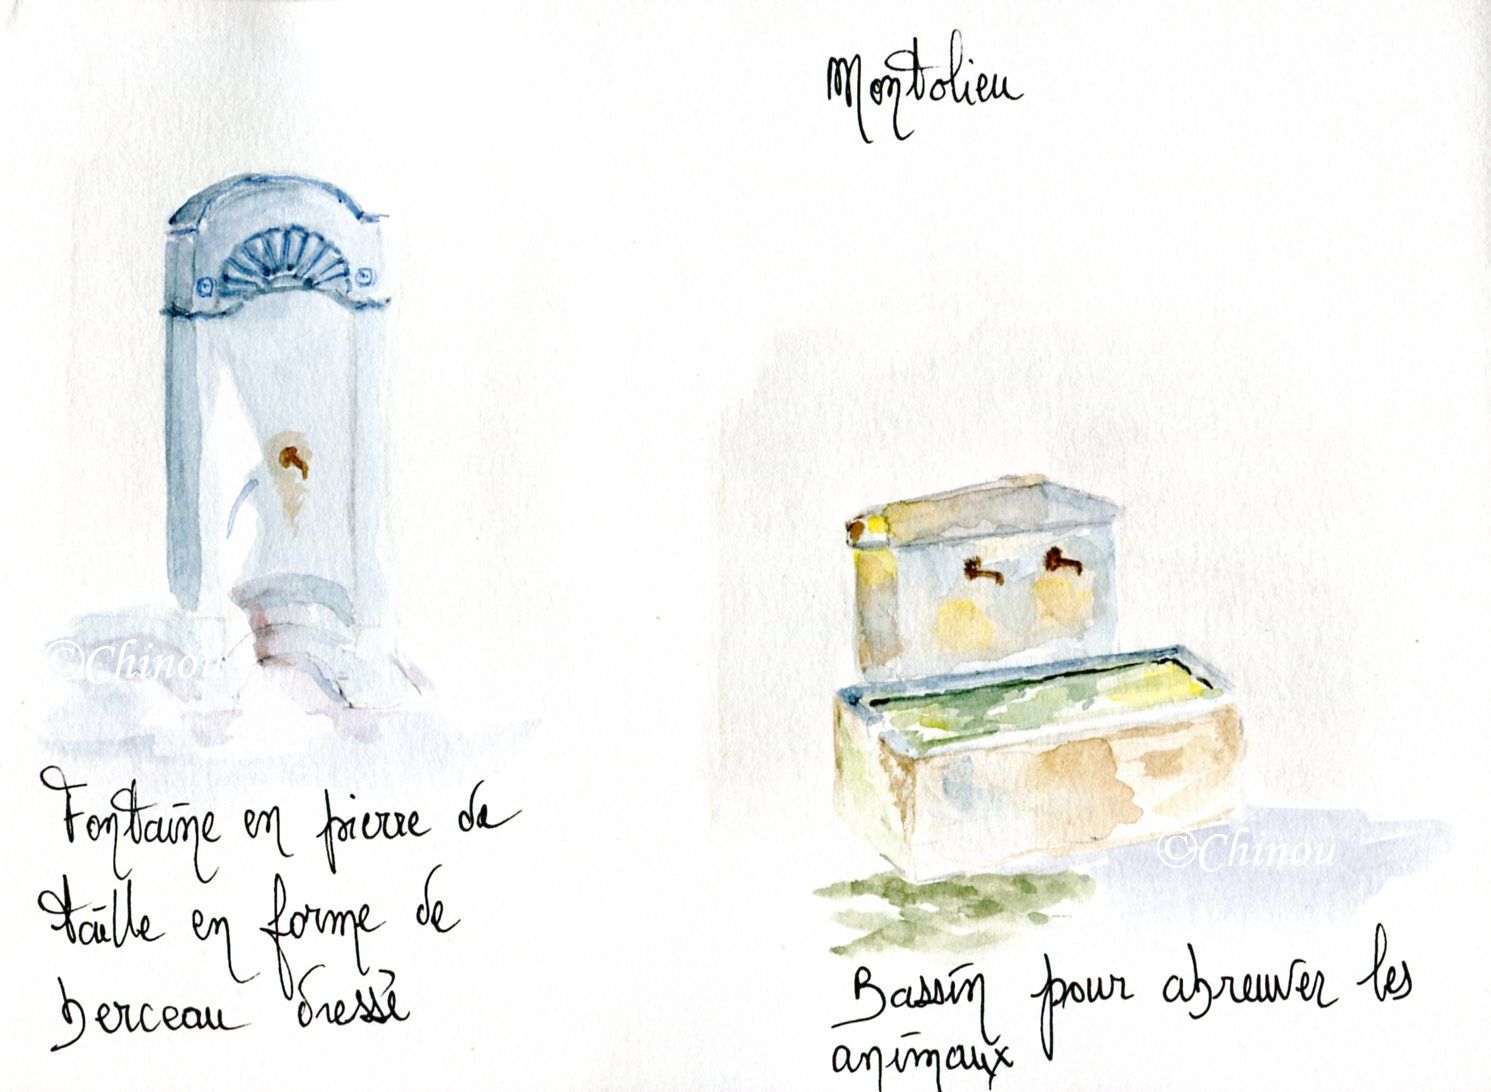 Montolieu
©Chinou
Fontaine en pierre de
taille en forme de
berceau dressé
©Chinou
Bassin pour abreuver les
animaux